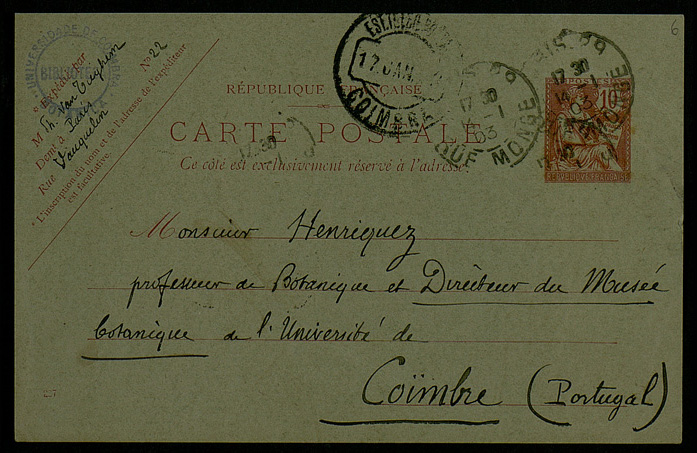 6
UNIVERSIDADE DE COIMBRA
BIBLIOTECA
Expédié par
M Th. Van Tieghem
Dom.t à Paris
Rue Vauquelin N° 22
L'inscription du nom et de l'adresse de l'expéditeur
est facultative.
17 JAN.
COIMBRA
17 30
RUE MONGE
03
POSTES
10
RÉPUBLIQUE FRANÇAISE
RÉPUBLIQUE FRANÇAISE
CARTE POSTALE
Ce côté est exclusivement réservé à l'adresse.
17 30
Monsieur Henriquez
professeur de Botanique et Directeur du Musée
botanique de l'Université de
Coïmbre (Portugal)